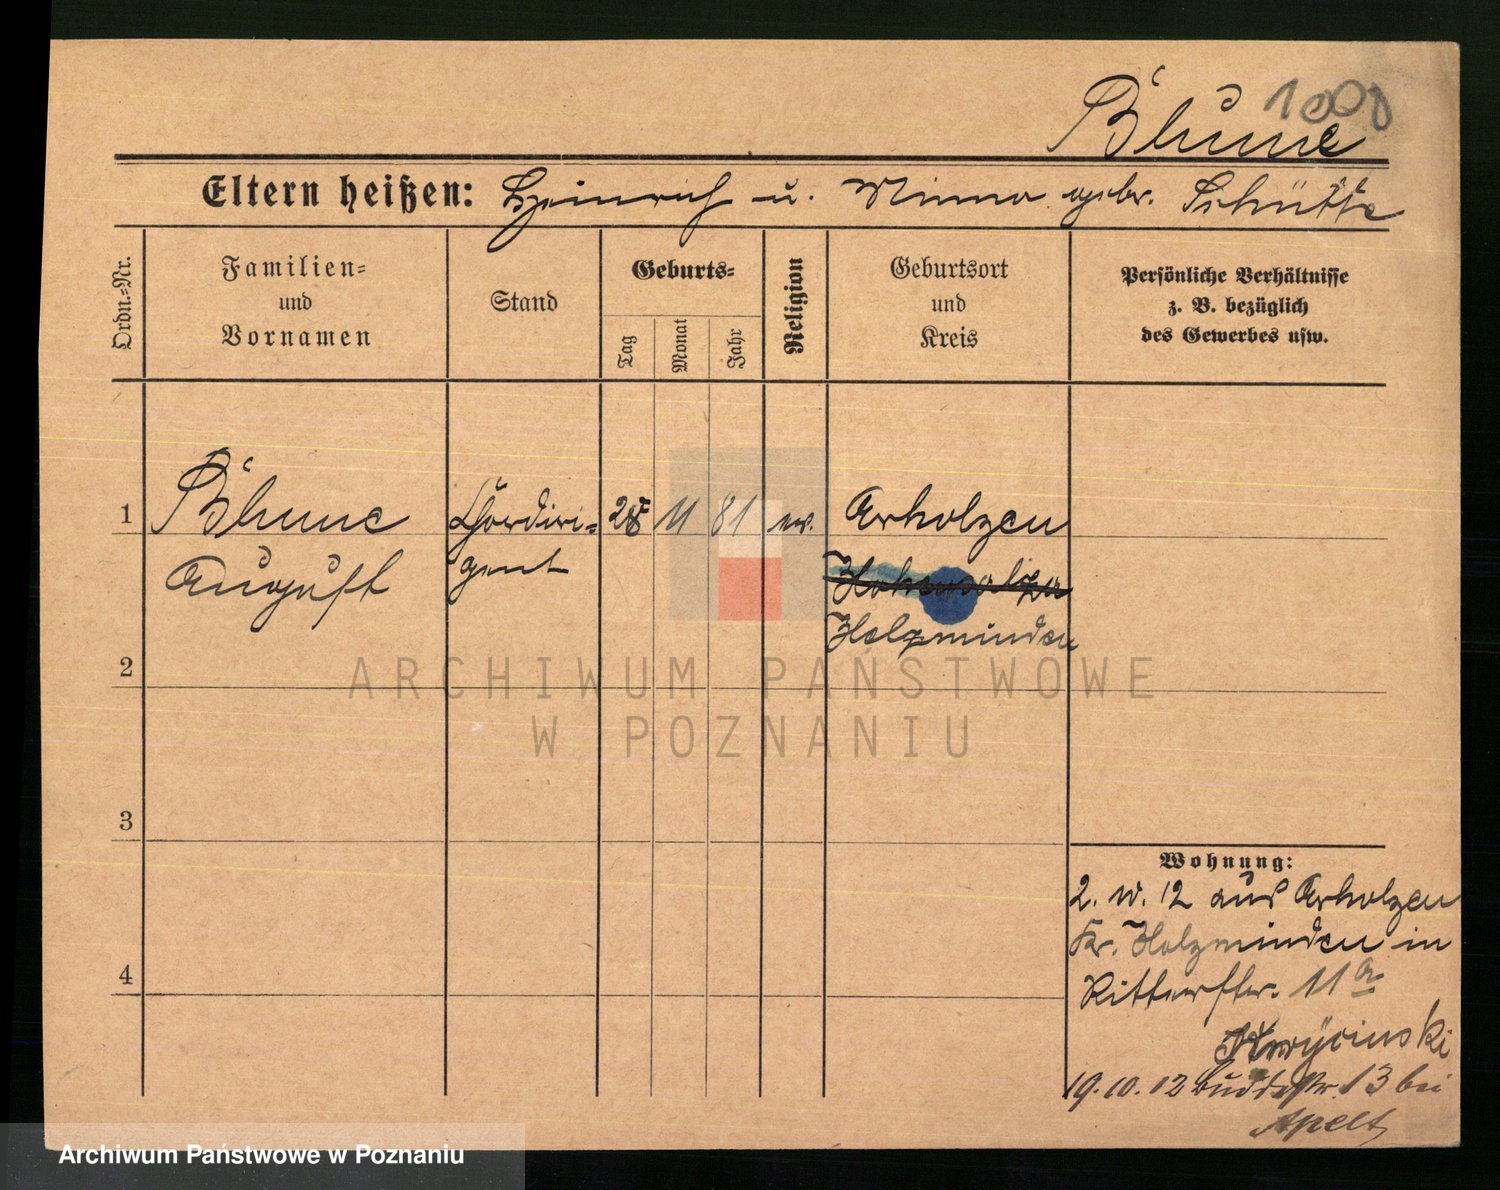 1000
Blume
Eltern heißen: Heinrich u. Minna gebr. Schütte
Ordn.-Nr.
Familien-
und
Vornamen
Stand
Geburts-
Tag
Monat
Jahr
Religion
Geburtsort
und
Kreis
Persönliche Verhältnisse
z. B. bezüglich
des Gewerbes usw.
1
Blume
August
Chordiri-
gent
11
81
ev.
Arholzen
Hohensalza
Holzminden
2
3
4
Wohnung:
2. IV. 12 aus Arholzen
Kr. Holzminden in
Ritterstr. 11a
19.10.12 Buddestr. 13 bei
Apelt
ARCHIWUM PAŃSTWOWE
W POZNANIU
Archiwum Państwowe w Poznaniu